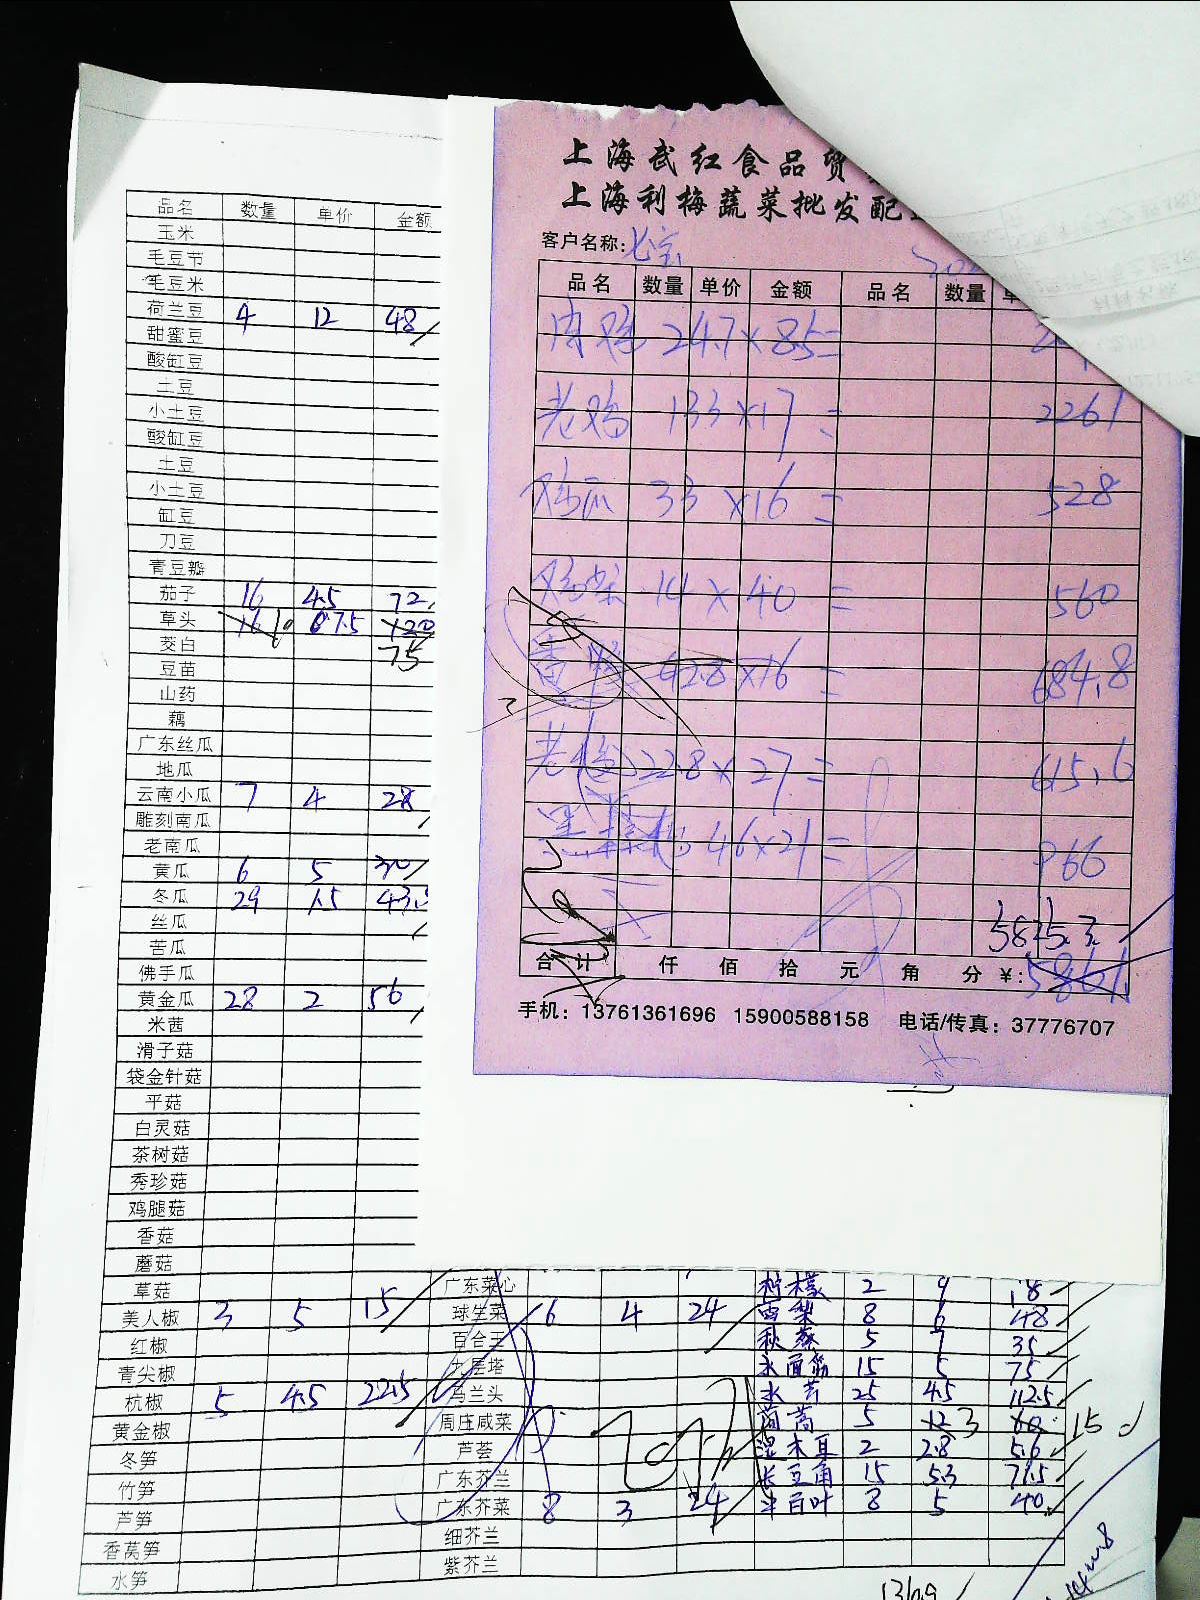 上海武红食品贸
上海利梅蔬菜批发配
客户名称: 七宝
品名 数量 单价 金额 品名 数量
肉鸡 24.7×85=
老鸡 133×17= 2261
鸡爪 33×16= 528
14×40= 560
42.8×16= 684.8
22.8×27= 615.6
46×21= 966
5825.3
合计 仟 佰 拾 元 角 分 ¥:
手机: 13761361696 15900588158 电话/传真: 37776707
品名 数量 单价 金额
玉米
毛豆节
毛豆米
荷兰豆 4 12 48
甜蜜豆
酸缸豆
土豆
小土豆
酸缸豆
土豆
小土豆
缸豆
刀豆
青豆瓣
茄子 16 4.5 72
草头 10 7.5 120
茭白 75
豆苗
山药
藕
广东丝瓜
地瓜
云南小瓜 7 4 28
雕刻南瓜
老南瓜
黄瓜 6 5 30
冬瓜 29 1.5 43.
丝瓜
苦瓜
佛手瓜
黄金瓜 28 2 56
米茜
滑子菇
袋金针菇
平菇
白灵菇
茶树菇
秀珍菇
鸡腿菇
香菇
蘑菇
草菇 广东菜心 柠檬 2 9 18
美人椒 3 5 15 球生菜 6 4 24 雪梨 8 6 48
红椒 百合王 秋葵 5 7 35
青尖椒 九层塔 水面筋 15 5 75
杭椒 5 4.5 22.5 马兰头 水芹 25 4.5 112.5
黄金椒 周庄咸菜 茼蒿 5 12 3 60 15
冬笋 芦荟 湿木耳 2 2.8 5.6
竹笋 广东芥兰 长豆角 15 5.3 71.5
芦笋 广东芥菜 8 3 24 半百叶 8 5 40
香莴笋 细芥兰
水笋 紫芥兰